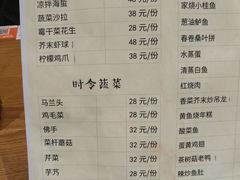 凉拌海蜇 38元/份
蔬菜沙拉 28元/份
霉干菜花生 28元/份
芥末虾球 38元/份
柠檬鸡爪 38元/份
时令蔬菜
马兰头 28元/份
鸡毛菜 28元/份
佛手 32元/份
菜杆蘑菇 32元/份
芹菜 28元/份
芋艿 28元/份
家烧小桂鱼
葱油鲈鱼
春卷桑叶拼
水蒸蛋
清蒸白鱼
红烧肉
香菜芥末炒吊龙
黄鱼烧年糕
酸菜鱼
蛋黄鸡翅
茶树菇老鸭
辣炒鱼肚